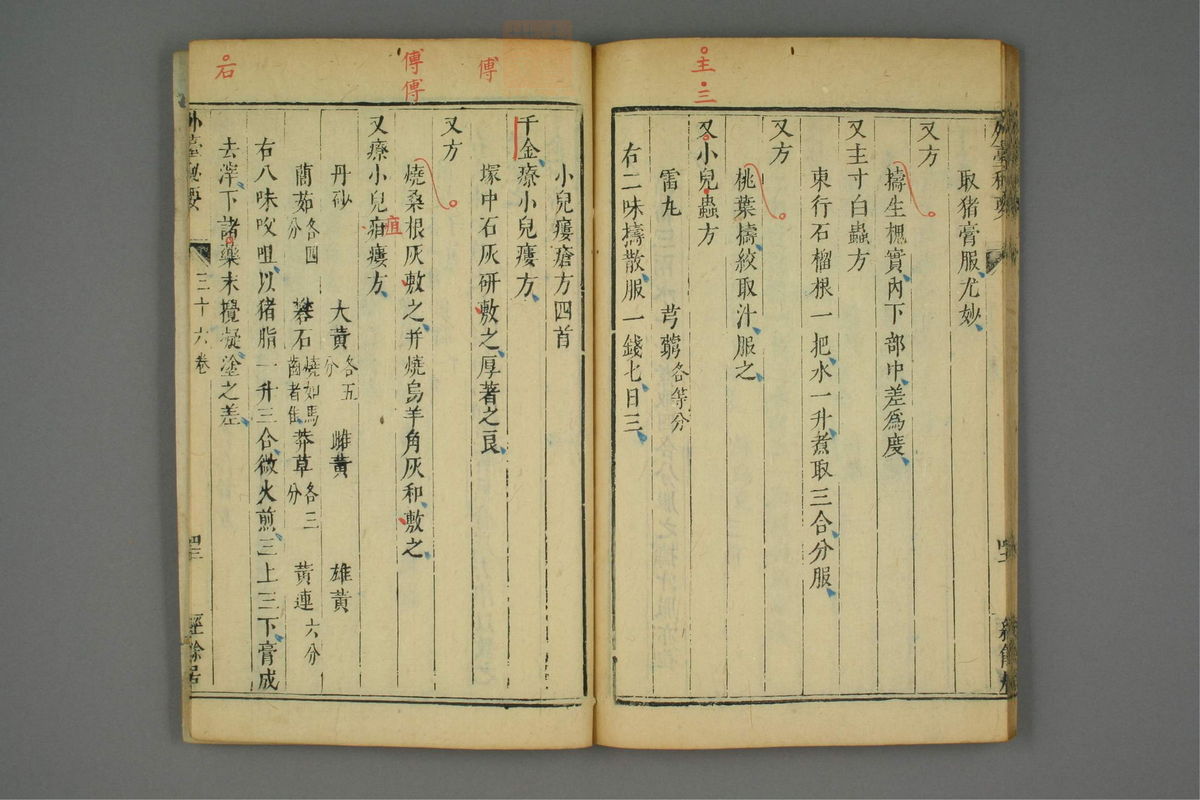 主
三
取猪膏服尤妙
又方
擣生槐實內下部中差為度
又主寸白蟲方
東行石榴根一把水一升煮取三合分服
又方
桃葉擣絞取汁服之
又小兒蟲方
雷丸 芎藭各等分
右二味擣散服一錢匕日三
傅
傅傅
石
小兒瘻瘡方四首
千金療小兒瘻方
塚中石灰研敷之厚著之良
又方
燒桑根灰敷之并燒烏羊角灰和敷之
又療小兒疽瘻方
疽
丹砂 大黃各五分 雌黃 雄黃
䕡茹各四分 礬石燒如馬齒者 莽草各三分 黃連六分
右八味㕮咀以猪脂一升三合微火煎三上三下膏成
去滓下諸藥末攪凝塗之差
外臺秘要
三十六卷
經餘居